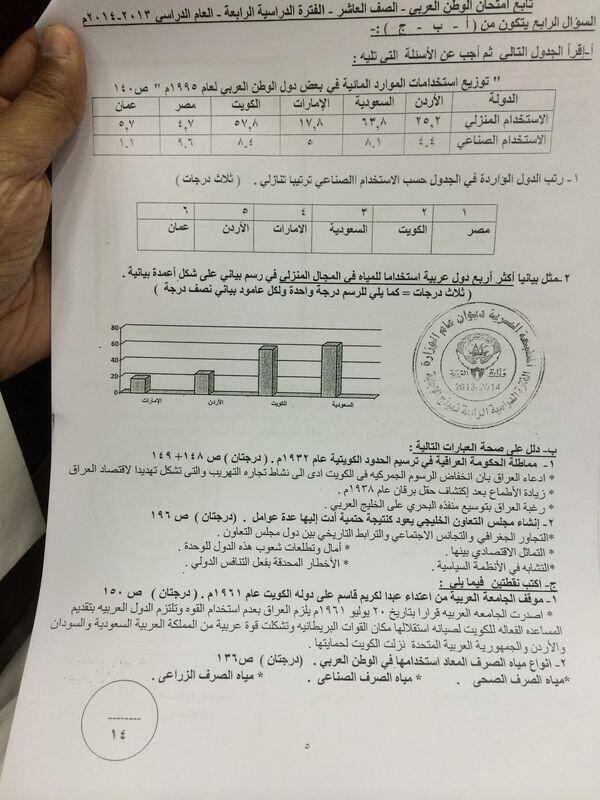 تابع امتحان الوطن العربي - الصف العاشر - الفترة الدراسية الرابعة - العام الدراسي ٢٠١٣-٢٠١٤م
السؤال الرابع يتكون من ( أ - ب - ج ) :-
أ-إقرأ الجدول التالي ثم أجب عن الأسئلة التي تليه :
" توزيع استخدامات الموارد المائية في بعض دول الوطن العربي لعام ١٩٩٥م " ص١٤٠
الدولة الأردن السعودية الإمارات الكويت مصر عمان
الاستخدام المنزلي ٢٥,٢ ٦٣,٨ ١٧,٨ ٥٧,٨ ٤,٧ ٥,٧
الاستخدام الصناعي ٤.٤ ٨.١ ٥ ٨.٤ ٩.٦ ١.١
١- رتب الدول الواردة في الجدول حسب الاستخدام االصناعي ترتيبا تنازلي . ( ثلاث درجات )
١ ٢ ٣ ٤ ٥ ٦
مصر الكويت السعودية الامارات الأردن عمان
٢-مثل بيانيا أكثر أربع دول عربية استخداما للمياه في المجال المنزلي في رسم بياني على شكل أعمدة بيانية .
( ثلاث درجات = كما يلي للرسم درجة واحدة ولكل عامود بياني نصف درجة )
80
60
40
20
0
السعودية الكويت الأردن الإمارات
وزارة التربية
2013-2014
ب- دلل على صحة العبارات التالية :
١- مماطلة الحكومة العراقية في ترسيم الحدود الكويتية عام ١٩٣٢م . ( درجتان ) ص ١٤٨+ ١٤٩
* ادعاء العراق بان انخفاض الرسوم الجمركيه في الكويت ادى الى نشاط تجاره التهريب والتى تشكل تهديدا لاقتصاد العراق
* زيادة الأطماع بعد إكتشاف حقل برقان عام ١٩٣٨م .
* رغبة العراق بتوسيع منفذه البحري على الخليج العربي .
٢- إنشاء مجلس التعاون الخليجي يعود كنتيجة حتمية أدت إليها عدة عوامل . (درجتان ) ص ١٩٦
*التجاور الجغرافي والتجانس الاجتماعي والترابط التاريخي بين دول مجلس التعاون .
* التماثل الاقتصادي بينها . * أمال وتطلعات شعوب هذه الدول للوحدة .
*التشابه في الأنظمة السياسية . * الأخطار المحدقة بفعل التنافس الدولي .
ج- اكتب نقطتين فيما يلي :
١- موقف الجامعة العربية من اعتداء عبدا لكريم قاسم على دوله الكويت عام ١٩٦١م . ( درجتان ) ص ١٥٠
* اصدرت الجامعه العربيه قرارا بتاريخ ٢٠ يوليو ١٩٦١م يلزم العراق بعدم استخدام القوه وتلتزم الدول العربيه بتقديم
المساعده الفعاله للكويت لصيانه استقلالها مكان القوات البريطانيه وتشكلت قوة عربية من المملكة العربية السعودية والسودان
والأردن والجمهورية العربية المتحدة نزلت الكويت لحمايتها .
٢- انواع مياه الصرف المعاد استخدامها في الوطن العربي . (درجتان ) ص١٣٦
*مياه الصرف الصحى . * مياه الصرف الصناعى . * مياه الصرف الزراعى .
١٤
٥